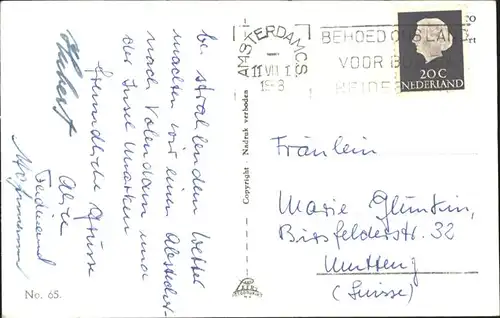 bei strahlendem Wetter
machten wir einen Abstecher
nach Volendam und
der Insel Marken
Freundliche Grüsse
Alice
Ferdinand
Hubert
No. 65.
Copyright - Nadruk verboden
AMSTERDAM CS
11 VII 1
BEHOED ONS LAND
VOOR
20 C
NEDERLAND
Fräulein
Marie
Birsfelderstr. 32
Muttenz
(Suisse)